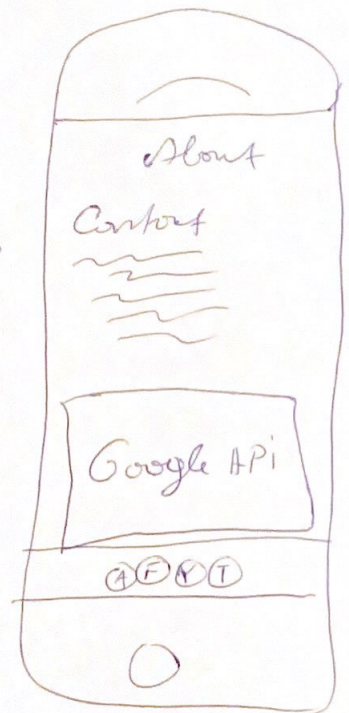 About
Contact
Google APi
A F Y T